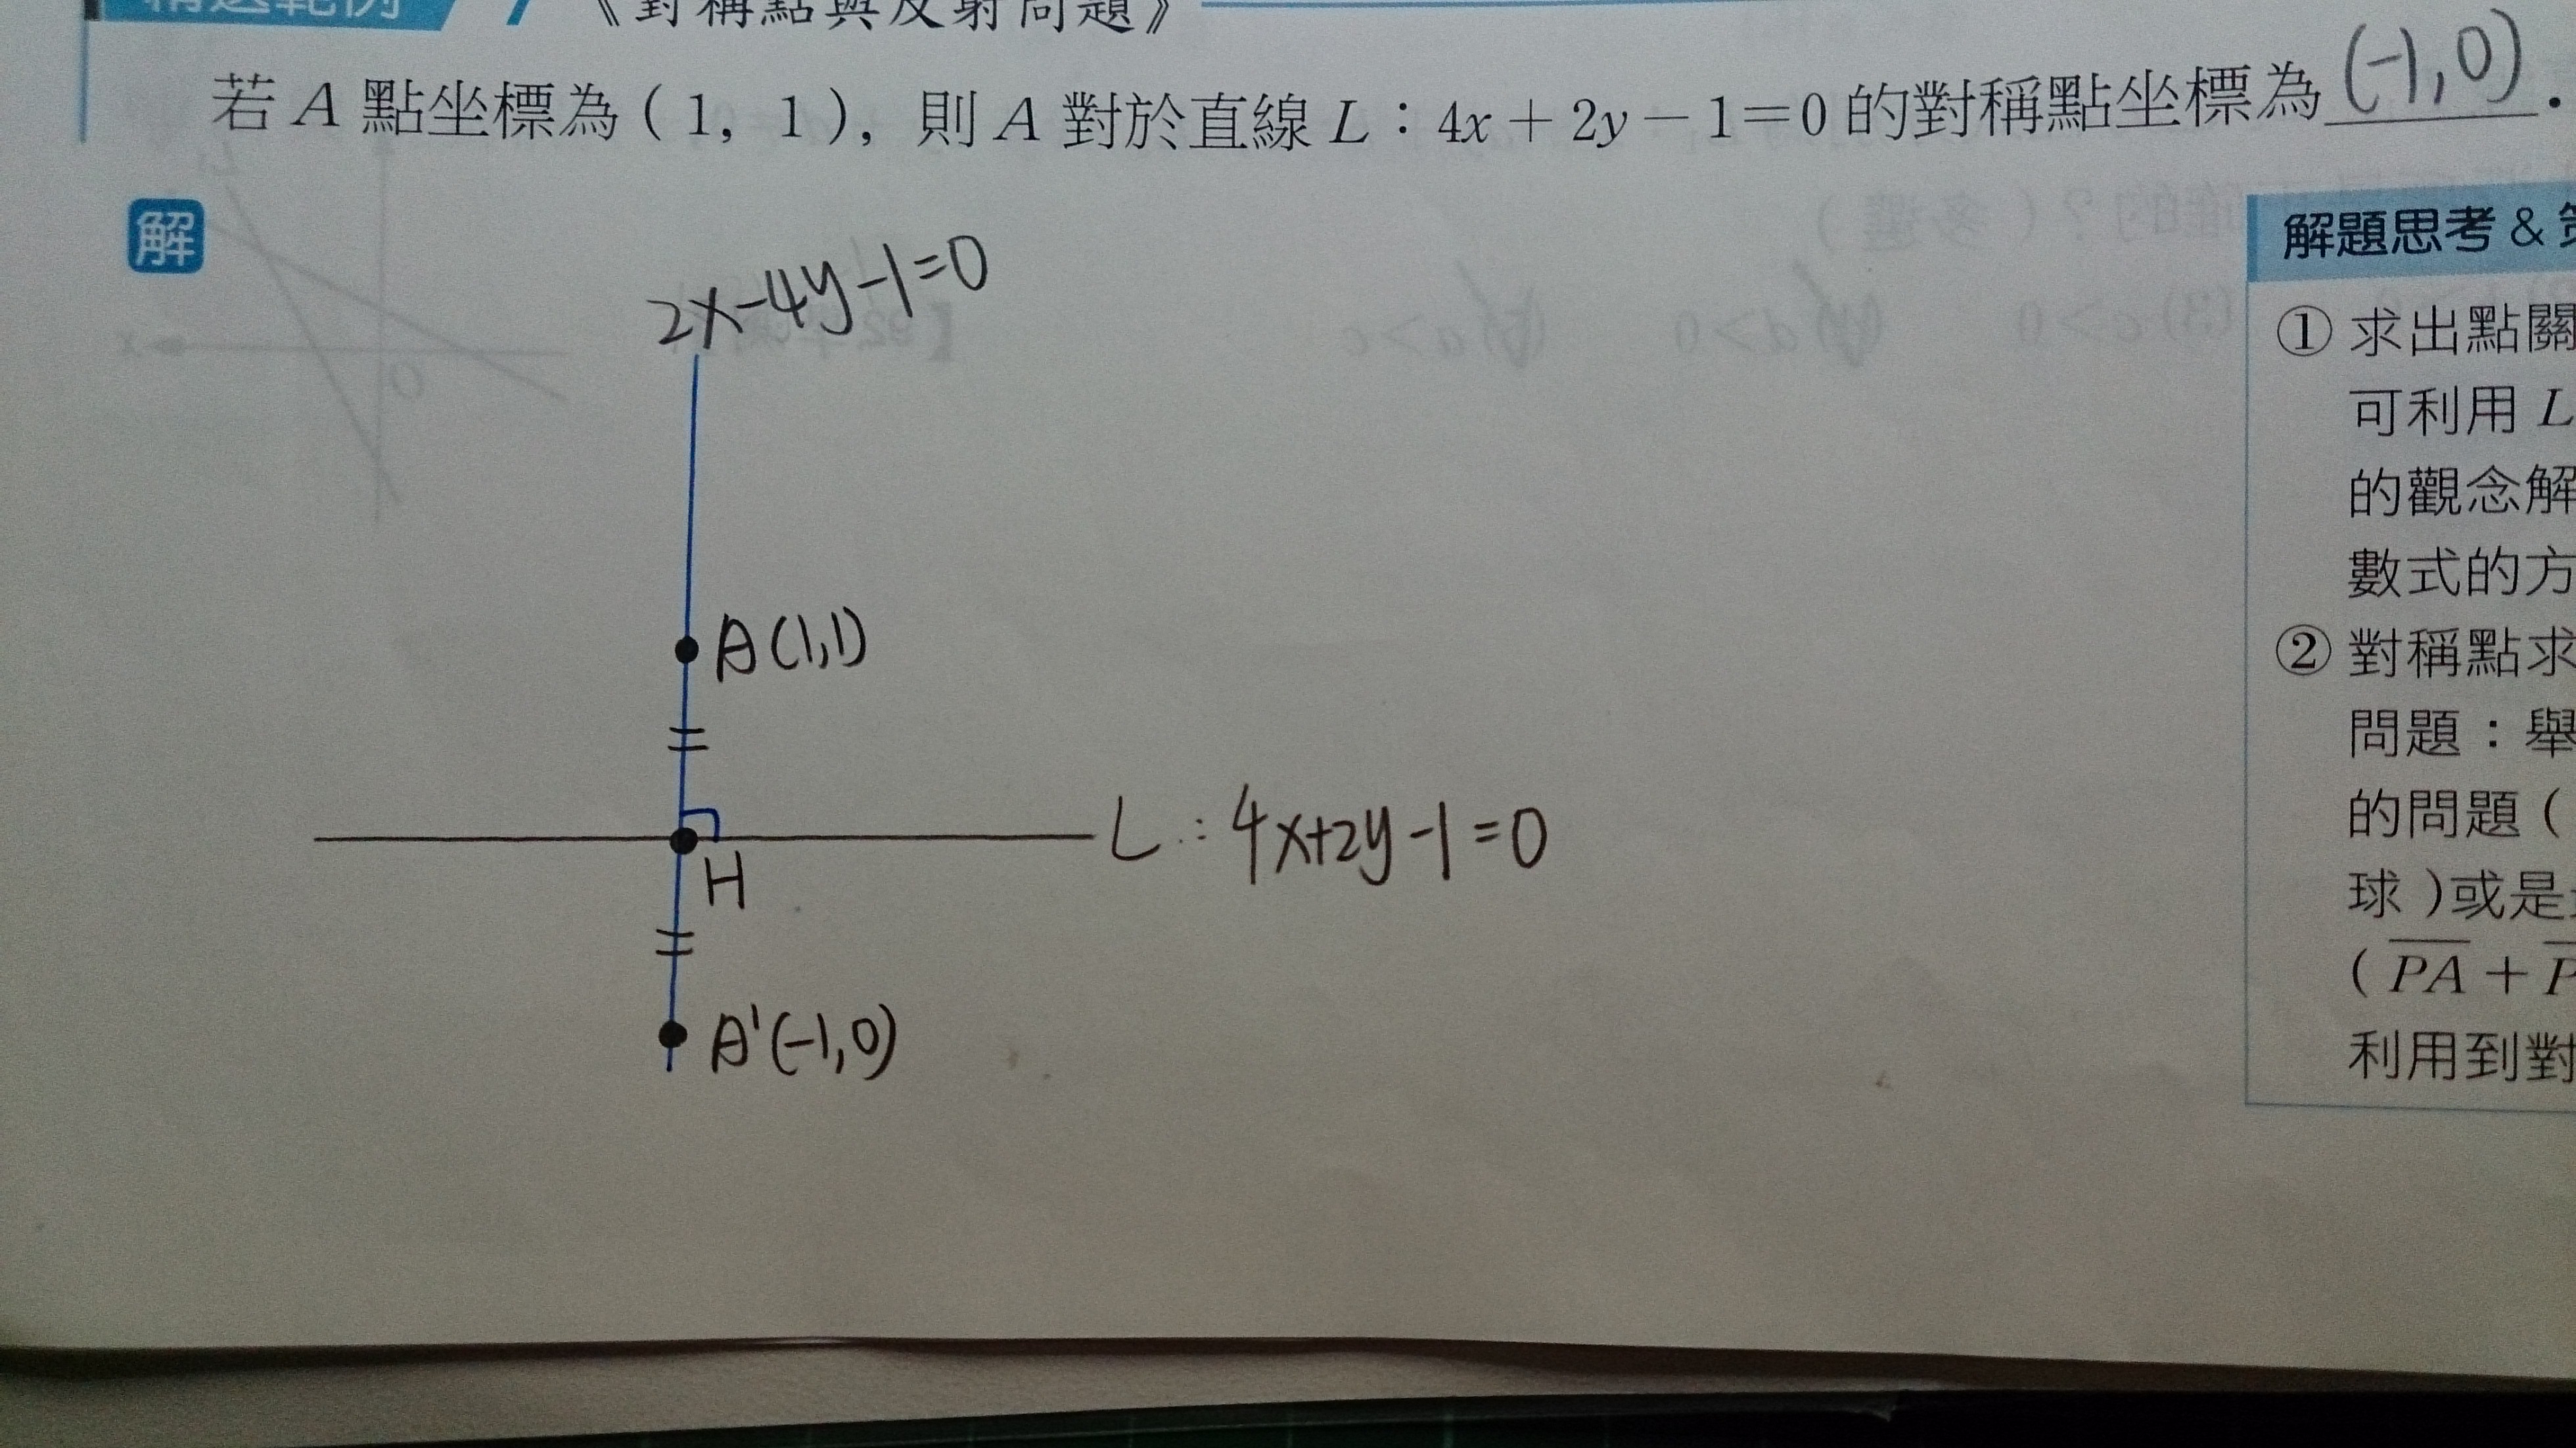 精選範例 7 《對稱點與反射問題》
若 A 點坐標為 ( 1, 1 ), 則 A 對於直線 L : 4x + 2y − 1 = 0 的對稱點坐標為 (-1, 0) .
解
2x-4y-1=0
A(1,1)
H
L : 4x+2y-1=0
A'(-1,0)
解題思考 &
① 求出點關
可利用 L
的觀念解
數式的方
② 對稱點求
問題：舉
的問題 (
球 ) 或是
( PA + P
利用到對
(多選)